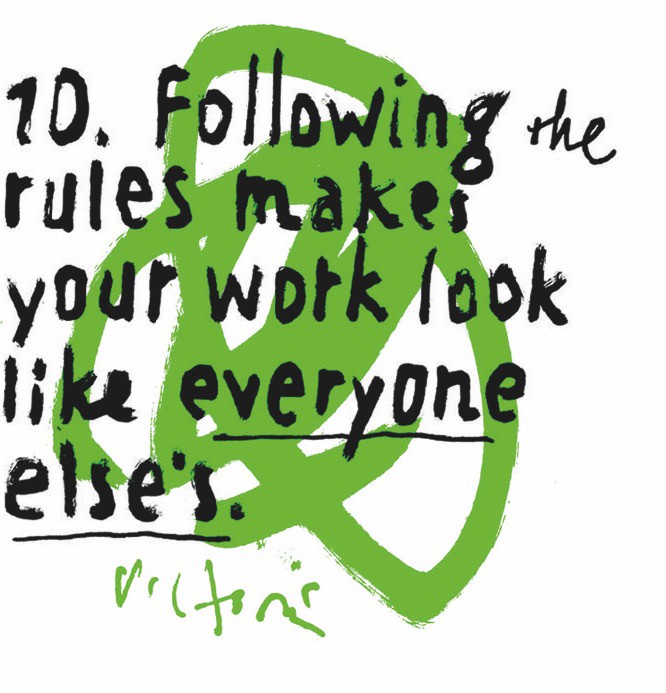 10. Following the
rules makes
your work look
like everyone
else's.